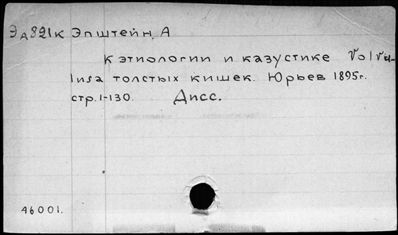 Эд821к Эпштейн, А
К этиологии и казустике Volvu-
lusa толстых кишек. Юрьев 1895г.
стр. 1-130. Дисс.
46001.